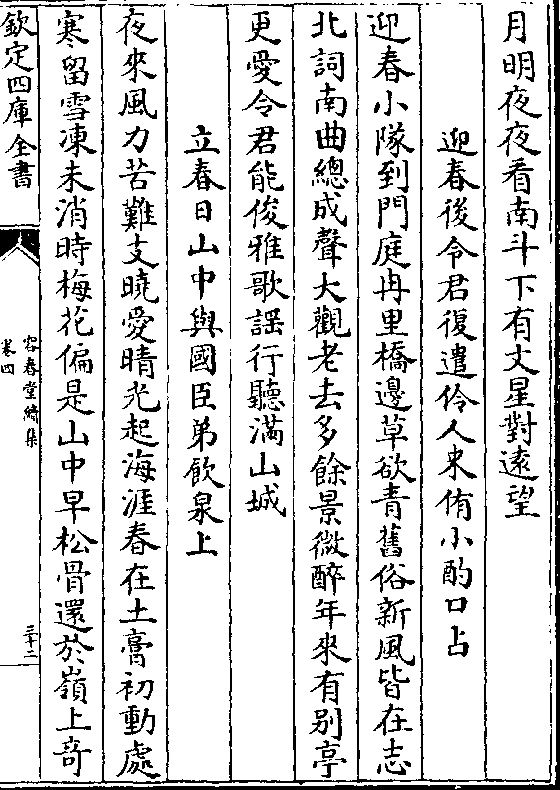 月明夜夜看南斗下有丈星對遠望
迎春後令君復遣伶人來侑小酌口占
迎春小隊到門庭冉里橋邊草欲青舊俗新風皆在志
北詞南曲總成聲大觀老去多餘景微醉年來有别亭
更愛令君能俊雅歌謡行聽滿山城
立春日山中與國臣弟飲泉上
夜來風力苦難支曉愛晴光起海涯春在土膏初動處
寒留雪凍未消時梅花偏是山中早松骨還於嶺上竒
欽定四庫全書
容春堂續集
卷四
三十二